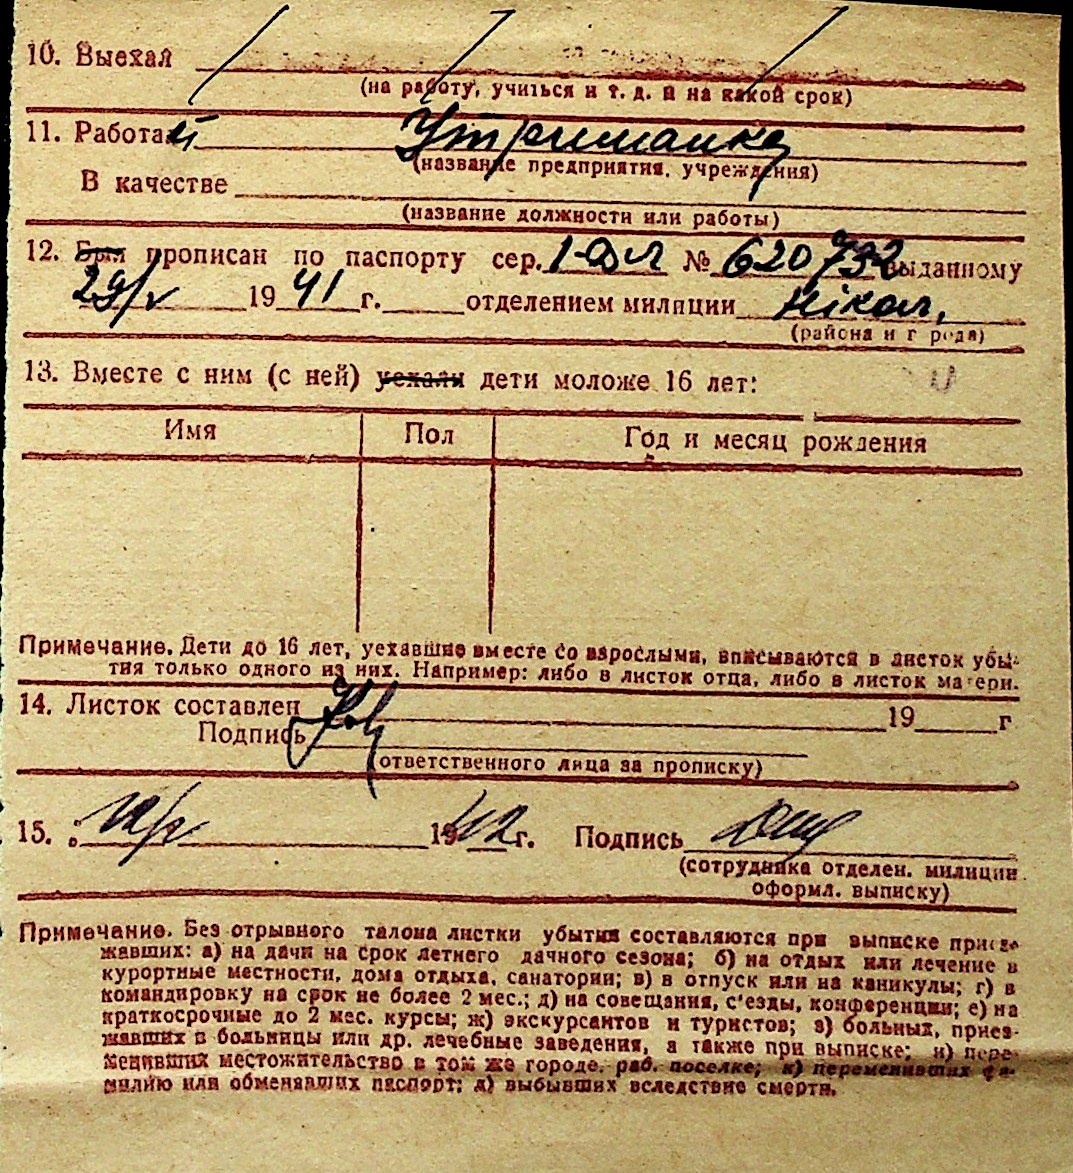 10. Выехал
(на работу, учиться и т. д. и на какой срок)
11. Работает Утриманка
(название предприятия, учреждения)
В качестве
(название должности или работы)
12. Был прописан по паспорту сер. № 620732 выданному
29/V 1941 г. отделением милиции Нікол.
(района и города)
13. Вместе с ним (с ней) уехали дети моложе 16 лет:
Имя Пол Год и месяц рождения
Примечание. Дети до 16 лет, уехавшие вместе со взрослыми, вписываются в листок убы-
тия только одного из них. Например: либо в листок отца, либо в листок матери.
14. Листок составлен 19 г
Подпись
(ответственного лица за прописку)
15. 1942 г. Подпись
(сотрудника отделен. милиции
оформл. выписку)
Примечание. Без отрывного талона листки убытия составляются при выписке приез-
жавших: а) на дачи на срок летнего дачного сезона; б) на отдых или лечение в
курортные местности, дома отдыха, санатории; в) в отпуск или на каникулы; г) в
командировку на срок не более 2 мес.; д) на совещания, с'езды, конференции; е) на
краткосрочные до 2 мес. курсы; ж) экскурсантов и туристов; з) больных, приез-
жавших в больницы или др. лечебные заведения, а также при выписке; и) пере-
менивших местожительство в том же городе, раб. поселке; к) переменивших фа-
милию или обменявших паспорт; л) выбывших вследствие смерти.